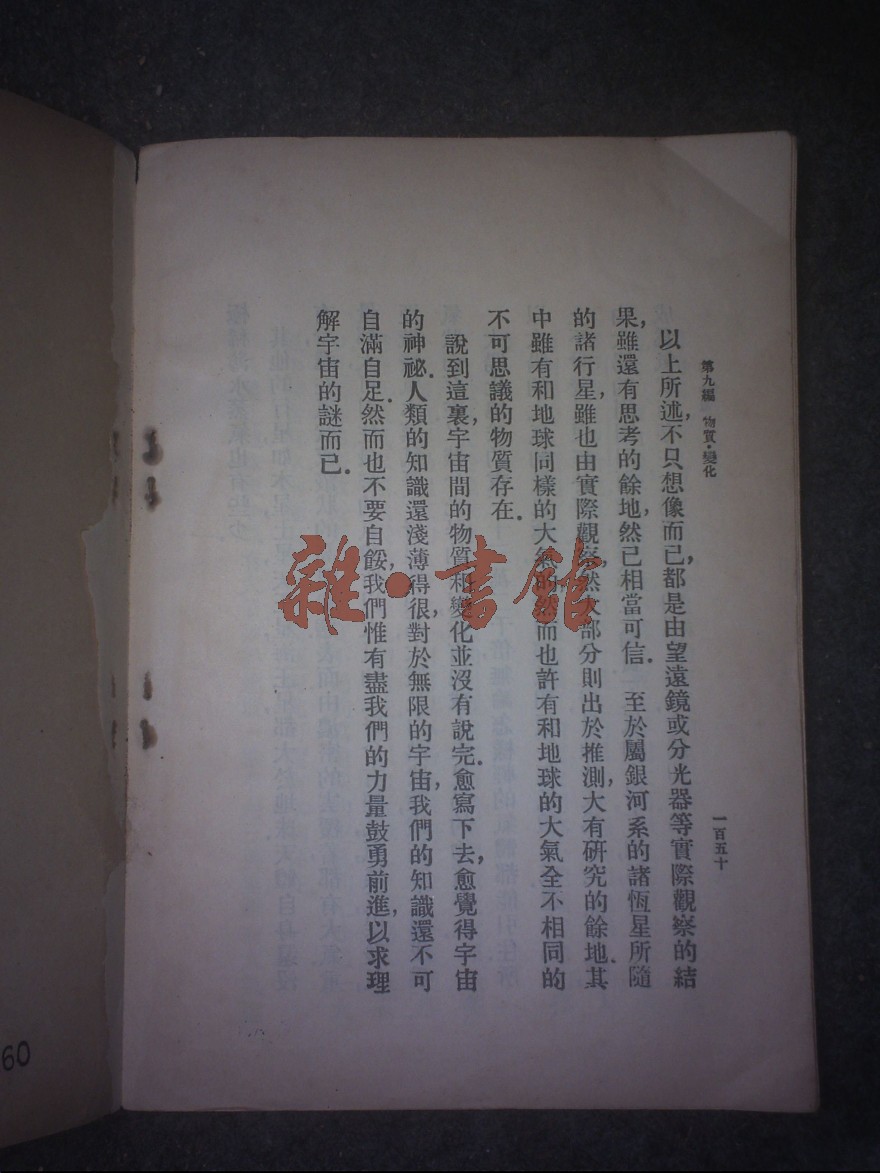 第九編 物質·變化
一百五十
以上所述,不只想像而已,都是由望遠鏡或分光器等實際觀察的結
果,雖還有思考的餘地,然已相當可信.至於屬銀河系的諸恆星所隨
的諸行星,雖也由實際觀察,然大部分則出於推測,大有研究的餘地.其
中雖有和地球同樣的大氣的,然而也許有和地球的大氣全不相同的
不可思議的物質存在.
說到這裏,宇宙間的物質和變化並沒有說完.愈寫下去,愈覺得宇宙
的神祕.人類的知識還淺薄得很,對於無限的宇宙,我們的知識還不可
自滿自足.然而也不要自餒,我們惟有盡我們的力量鼓勇前進,以求理
解宇宙的謎而已.
雜·書館
60